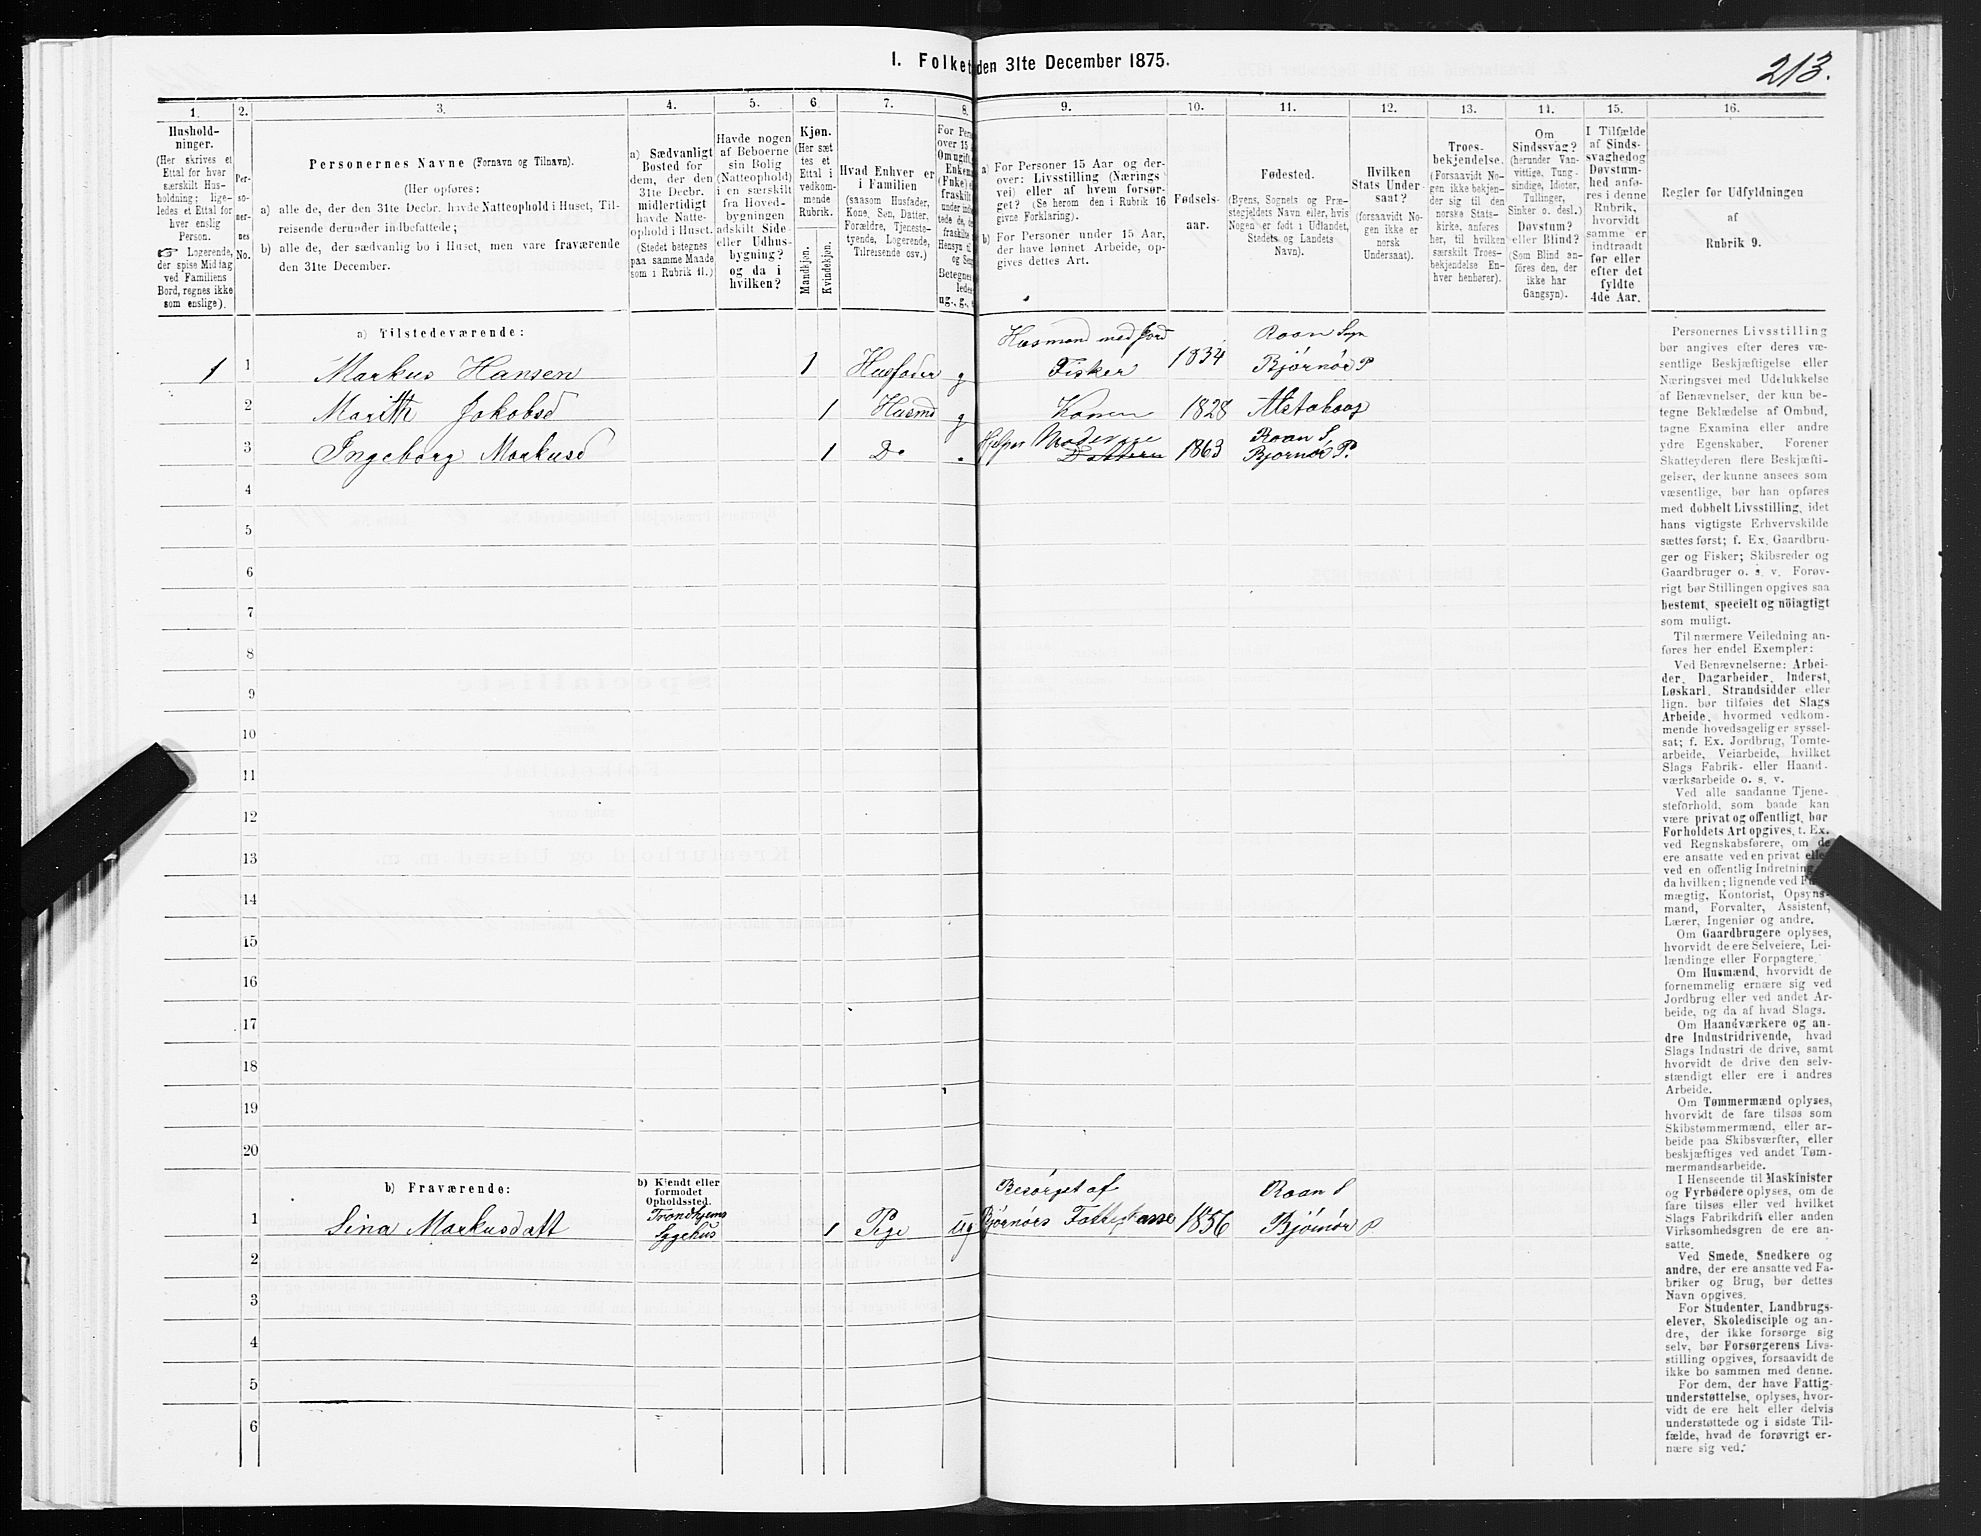 213.
1. Folket den 31te December 1875.
1. 2. 3. 4. 5. 6. 7. 8. 9. 10. 11. 12. 13. 14. 15. 16.
Hushold-
ninger.
(Her skrives et
Ettal for hver
særskilt Hus-
holdning; lige-
ledes et Ettal for
hver enslig
Person.
☞ Logerende,
der spise Middag
ved Familiens
Bord, regnes ikke
som enslige).
Per-
so-
ner-
nes
No.
Personernes Navne (Fornavn og Tilnavn).
(Her opføres:
a) alle de, der den 31te Decbr. havde Natteophold i Huset, Til-
reisende derunder indbefattede;
b) alle de, der sædvanlig bo i Huset, men vare fraværende
den 31te December.
a) Sædvanligt
Bosted for
dem, der den
31te Decbr.
midlertidigt
havde Natte-
ophold i Huset.
(Stedet betegnes
paa samme Maade
som i Rubrik 11.)
Havde nogen
af Beboerne
sin Bolig
(Natteophold)
i en særskilt
fra Hoved-
bygningen
adskilt Side-
eller Udhus-
bygning?
og da i
hvilken?
Kjøn.
(Her sæt
tes et
Ettal i
vedkom-
mende
Rubrik.
Mandkjøn.
Kvindekjøn.
Hvad Enhver er
i Familien
(saasom Husfader,
Kone, Søn, Datter,
Forældre, Tjeneste-
tyende, Logerende,
Tilreisende osv.)
For Pers
over 15 A
Om ugift,
Enkem
(Enke) e
fraskilt
ug., g., e
a) For Personer 15 Aar og der-
over: Livsstilling (Nærings
vei) eller af hvem forsør-
get? (Se herom den i Rubrik 16
givne Forklaring).
b) For Personer under 15 Aar,
der have lønnet Arbeide, op-
gives dettes Art.
Fødsels-
aar.
Fødested.
(Byens, Sognets og Præ-
stegjeldets Navn eller, hvis
Nogen er født i Udlandet,
Stedets og Landets
Navn).
Hvilken
Stats Under-
saat?
(forsaavidt No-
gen ikke er
norsk
Undersaat).
Troes-
bekjendelse.
(Forsaavidt No-
gen ikke bekjen-
der sig til den
norske Stats-
kirke, anføres
her, til hvilken
særskilt Troes-
bekjendelse En-
hver henhører).
Om
Sindssvag?
(herunder Van-
vittige, Tung-
sindige, Idioter,
Tullinger,
Sinker o. desl.)
Døvstum?
eller Blind?
(Som Blind an-
føres den, der
ikke har
Gangsyn).
I Tilfælde
af Sinds-
svaghed og
Døvstum-
hed anfø-
res i denne
Rubrik,
hvorvidt
samme er
indtraadt
før eller
efter det
fyldte
4de Aar.
Regler for Udfyldningen
af
Rubrik 9.
a) Tilstedeværende:
Husmand med Jord Roan Sogn
1 1 Markus Hansen 1 Husfader g Fisker 1834 Bjørnør P
2 Marith Jakobsd 1 Husmd g Konen 1828 Alstahoug
3 Ingeborg Markusd 1 Do . Hjelper Moderen 1863 Roan S
Datteren Bjørnør P.
4
5
6
7
8
9
10
11
12
13
14
15
16
17
18
19
20
b) Fraværende:
b) Kjendt eller
formodet
Opholdssted.
Trondhjems Besørget af Roan S
1 Sina Markusdatt Sygehus 1 Pige ug Bjørnørs Fattigkasse 1856 Bjørnør P
2
3
4
5
6
Personernes Livsstilling
bør angives efter deres væ-
sentlige Beskjæftigelse eller
Næringsvei med Udelukkelse
af Benævnelser, der kun be-
tegne Beklædelse af Ombud,
tagne Examina eller andre
ydre Egenskaber. Forener
Skatteyderen flere Beskjæfti-
gelser, der kunne ansees som
væsentlige, bør han opføres
med dobbelt Livsstilling, idet
hans vigtigste Erhvervskilde
sættes først; f. Ex. Gaardbru-
ger og Fisker; Skibsreder og
Gaardbruger o. s. v. Forøv-
rigt bør Stillingen opgives saa
bestemt, specielt og nöiagtigt
som muligt.
Til nærmere Veiledning an-
føres her endel Exempler:
Ved Benævnelserne: Arbei-
der, Dagarbeider, Inderst,
Løskarl, Strandsidder eller
lign. bør tilføies det Slags
Arbeide, hvormed vedkom-
mende hovedsagelig er syssel-
sat; f. Ex. Jordbrug, Tomte-
arbeide, Veiarbeide, hvilket
Slags Fabrik- eller Haand-
værksarbeide o. s. v.
Ved alle saadanne Tjene-
steforhold, som baade kan
være privat og offentligt, bør
Forholdets Art opgives, t. Ex.
ved Regnskabsførere, om de
ere ansatte ved en privat elle
ved en offentlig Indretning
da hvilken; lignende ved Fu
mægtig, Kontorist, Opsyns-
mand, Forvalter, Assistent,
Lærer, Ingeniør og andre.
Om Gaardbrugere oplyses,
hvorvidt de ere Selveiere, Lei-
lændinge eller Forpagtere.
Om Husmænd, hvorvidt de
fornemmelig ernære sig ved
Jordbrug eller ved andet Ar-
beide, og da af hvad Slags.
Om Haandværkere og an-
dre Industridrivende, hvad
Slags Industri de drive, samt
hvorvidt de drive den selv-
stændigt eller ere i andres
Arbeide.
Om Tømmermænd oplyses,
hvorvidt de fare tilsøs som
Skibstømmermænd, eller ar-
beide paa Skibsværfter, eller
beskjæftiges ved andet Tøm-
mermandsarbeide.
I Henseende til Maskinister
og Fyrbødere oplyses, om de
fare tilsøs eller ved hvilket
Slags Fabrikdrift eller anden
Virksomhedsgren de ere an-
satte.
Ved Smede, Snedkere og
andre, der ere ansatte ved Fa-
briker og Brug, bør dettes
Navn opgives.
For Studenter, Landbrugs-
elever, Skoledisciple og an-
dre, der ikke forsørge sig
selv, bør Forsørgerens Livs-
stilling opgives, forsaavidt de
ikke bo sammen med denne.
For dem, der have Fattig-
understøttelse, oplyses, hvor-
vidt de ere helt eller delvis
understøttede og i sidste Til-
fælde, hvad de forøvrigt er-
nære sig ved.